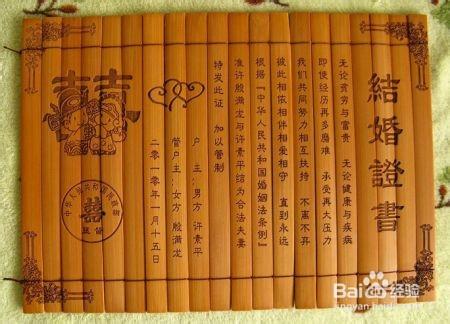 結婚證書
无论贫穷与富贵 无论健康与疾病
即使经历再多磨难 承受再大压力
我们共同努力相互扶持 不离不弃
彼此相依相伴相爱相守 直到永远
根据『中华人民共和国婚姻法条例』
准许殷满龙与许素平结为合法夫妻
特发此证 加以管制
户 主：男方 许素平
管户主：女方 殷满龙
二零一零年一月十五日
囍
中华人民共和国民政部
囍
监督
Baidu 经验
jingyan.baidu.com